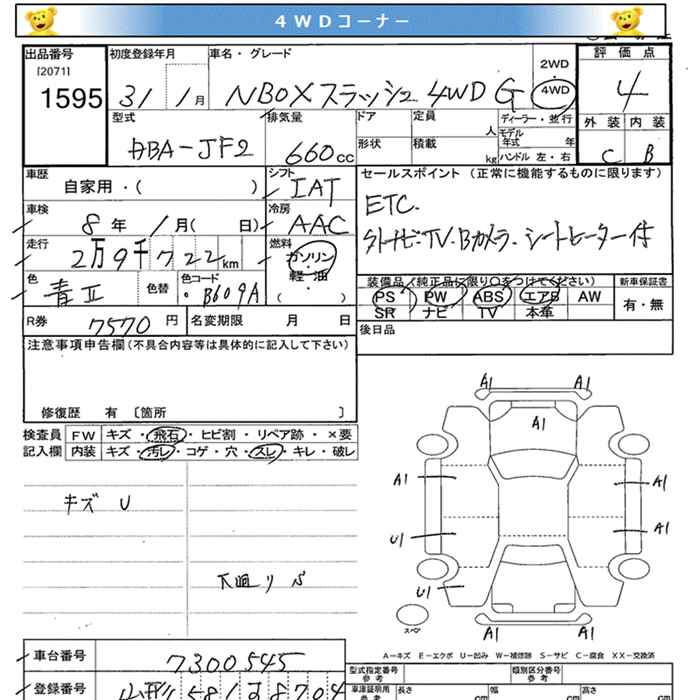 4WDコーナー
出品番号 初度登録年月 車名・グレード 2WD 評価点
[2071]
1595 31 1月 NBOXスラッシュ 4WD G 4WD 4
型式 排気量 ドア 定員 人 ディーラー・並行 外装 内装
DBA-JF2 660cc 形状 積載 kg モデル年式 年 ハンドル 左・右 C B
車歴 シフト セールスポイント (正常に機能するものに限ります)
自家用・( ) IAT ETC.
車検 8年 1月( 日) 冷房 AAC
走行 2万9千722km 燃料 ガソリン 軽・油 ( ) ナビTV.Bカメラ.シートヒーター付
色 青II 色替 色コード・B609A 装備品(純正品に限り○をつけてください) 新車保証書
PS PW ABS エアB AW 有・無
SR ナビ TV 本革
R券 7570円 名変期限 月 日 後日品
注意事項申告欄(不具合内容等は具体的に記入して下さい)
修復歴 有 〔箇所 〕
検査員 FW キズ・飛石・ヒビ割・リペア跡・×要
記入欄 内装 キズ・汚レ・コゲ・穴・スレ・キレ・破レ
A1 A1
A1
A1 A1
キズ U
U1 A1
下廻りS
U1
スペア A1 A1
A-キズ E-エクボ U-凹み W-補修跡 S-サビ C-腐食 XX-交換済
車台番号 7300545 型式指定番号 参考 類別区分番号 参考
登録番号 山形 581 8704 車庫証明用 参考 長さ cm 幅 cm 高さ cm